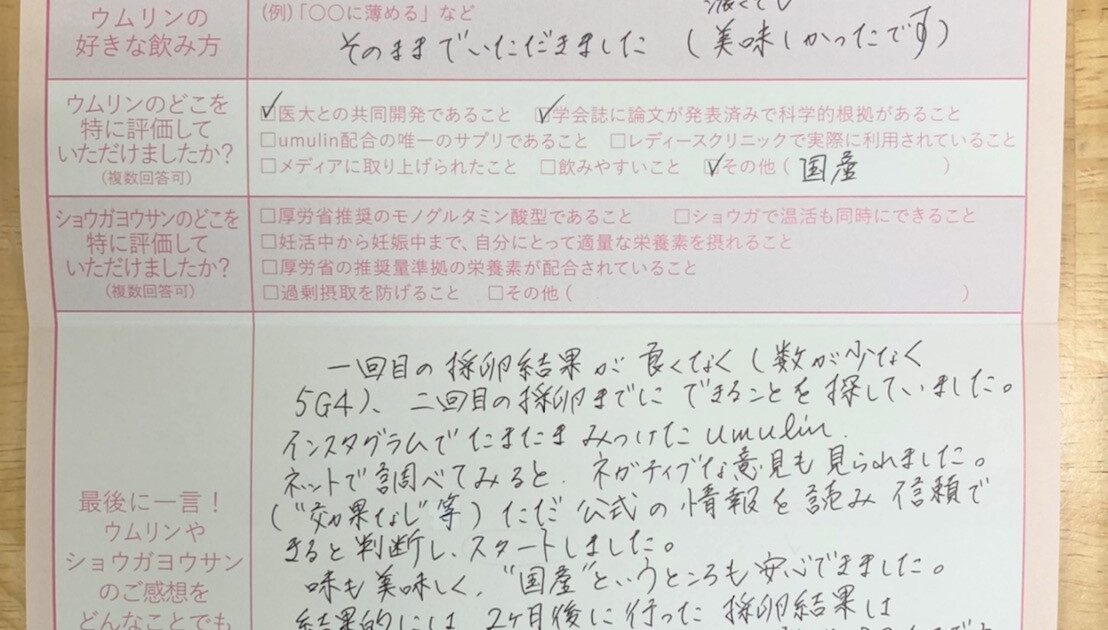 ウムリンの
好きな飲み方
(例)「○○に薄める」など
濃くても
そのままでいただきました (美味しかったです)
ウムリンのどこを
特に評価して
いただけましたか?
(複数回答可)
☑医大との共同開発であること ☑学会誌に論文が発表済みで科学的根拠があること
□umulin配合の唯一のサプリであること □レディースクリニックで実際に利用されていること
□メディアに取り上げられたこと □飲みやすいこと ☑その他( 国産 )
ショウガヨウサンのどこを
特に評価して
いただけましたか?
(複数回答可)
□厚労省推奨のモノグルタミン酸型であること □ショウガで温活も同時にできること
□妊活中から妊娠中まで、自分にとって適量な栄養素を摂れること
□厚労省の推奨量準拠の栄養素が配合されていること
□過剰摂取を防げること □その他( )
最後に一言!
ウムリンや
ショウガヨウサン
のご感想を
どんなことでも
一回目の採卵結果が良くなく(数が少なく
5G4)、二回目の採卵までにできることを探していました。
インスタグラムでたまたまみつけたumulin.
ネットで調べてみると、ネガティブな意見も見られました。
("効果なし"等)ただ公式の情報を読み信頼で
きると判断し、スタートしました。
味も美味しく、"国産"というところも安心できました。
結果的には、2ヶ月後に行った採卵結果は